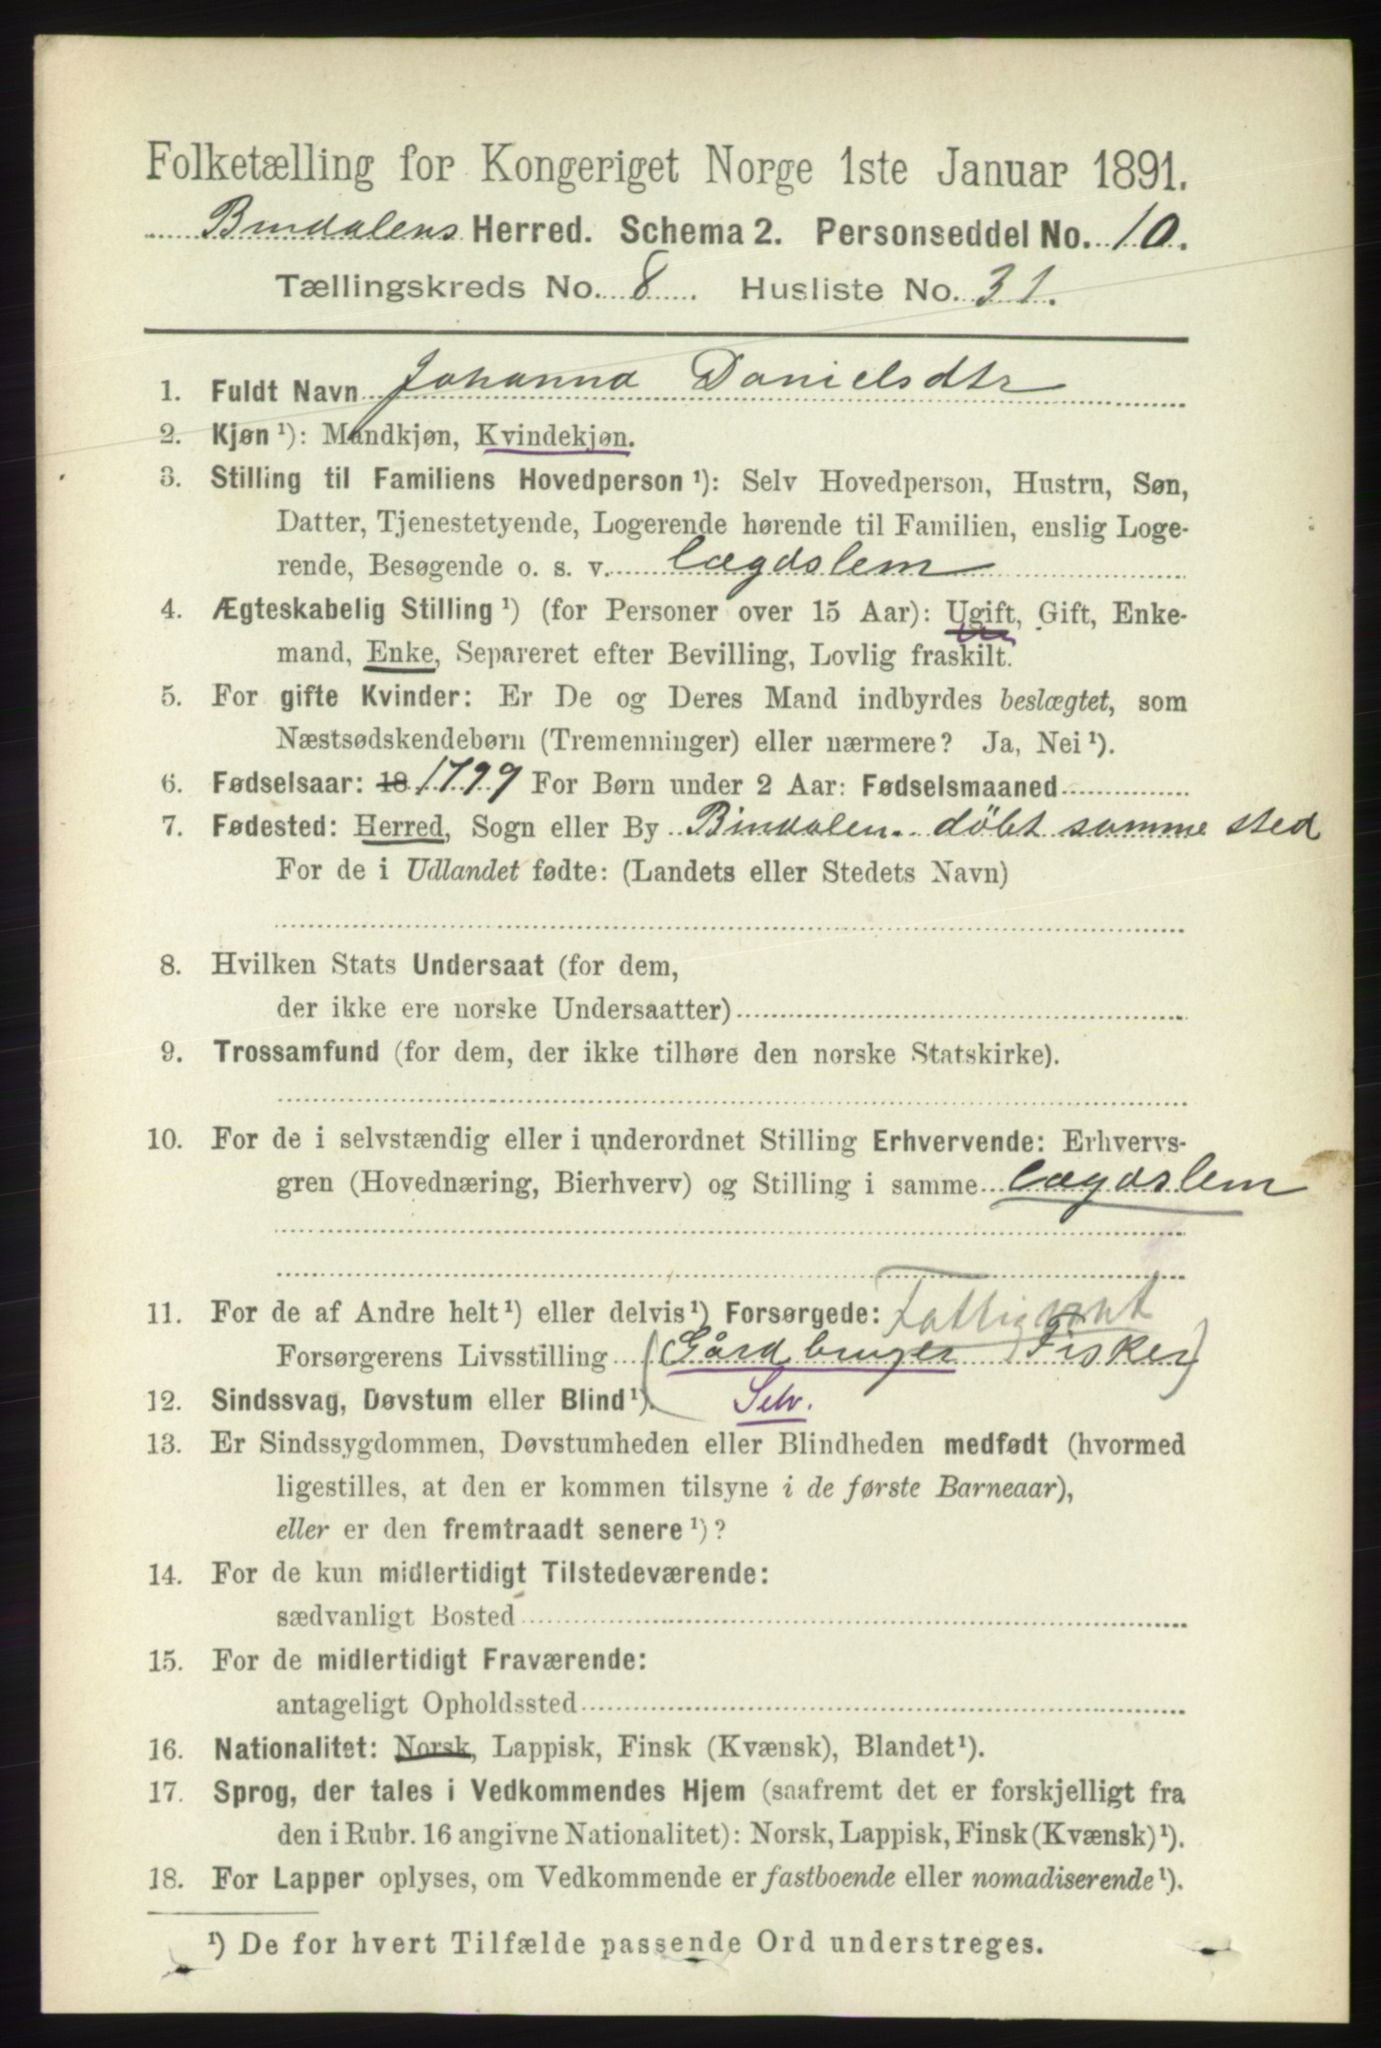 Folketælling for Kongeriget Norge 1ste Januar 1891.
Bindalens Herred. Schema 2. Personseddel No. 10.
Tællingskreds No. 8. Husliste No. 31.
1. Fuldt Navn Johanna Danielsdtr
2. Kjøn ¹): Mandkjøn, Kvindekjøn.
3. Stilling til Familiens Hovedperson ¹): Selv Hovedperson, Hustru, Søn,
Datter, Tjenestetyende, Logerende hørende til Familien, enslig Loge-
rende, Besøgende o. s. v. Lægdslem
4. Ægteskabelig Stilling ¹) (for Personer over 15 Aar): Ugift, Gift, Enke-
mand, Enke, Separeret efter Bevilling, Lovlig fraskilt.
5. For gifte Kvinder: Er De og Deres Mand indbyrdes beslægtet, som
Næstsødskendebørn (Tremenninger) eller nærmere? Ja, Nei ¹).
6. Fødselsaar: 18 1799 For Børn under 2 Aar: Fødselsmaaned
7. Fødested: Herred, Sogn eller By Bindalen. döbt samme sted
For de i Udlandet fødte: (Landets eller Stedets Navn)
8. Hvilken Stats Undersaat (for dem,
der ikke ere norske Undersaatter)
9. Trossamfund (for dem, der ikke tilhøre den norske Statskirke).
10. For de i selvstændig eller i underordnet Stilling Erhvervende: Erhvervs-
gren (Hovednæring, Bierhverv) og Stilling i samme Lægdslem
11. For de af Andre helt ¹) eller delvis ¹) Forsørgede: Fattigunt
Forsørgerens Livsstilling (Gårdbruger Fisker)
12. Sindssvag, Døvstum eller Blind ¹). Selv.
13. Er Sindssygdommen, Døvstumheden eller Blindheden medfødt (hvormed
ligestilles, at den er kommen tilsyne i de første Barneaar),
eller er den fremtraadt senere ¹)?
14. For de kun midlertidigt Tilstedeværende:
sædvanligt Bosted
15. For de midlertidigt Fraværende:
antageligt Opholdssted
16. Nationalitet: Norsk, Lappisk, Finsk (Kvænsk), Blandet ¹).
17. Sprog, der tales i Vedkommendes Hjem (saafremt det er forskjelligt fra
den i Rubr. 16 angivne Nationalitet): Norsk, Lappisk, Finsk (Kvænsk) ¹).
18. For Lapper oplyses, om Vedkommende er fastboende eller nomadiserende ¹).
¹) De for hvert Tilfælde passende Ord understreges.